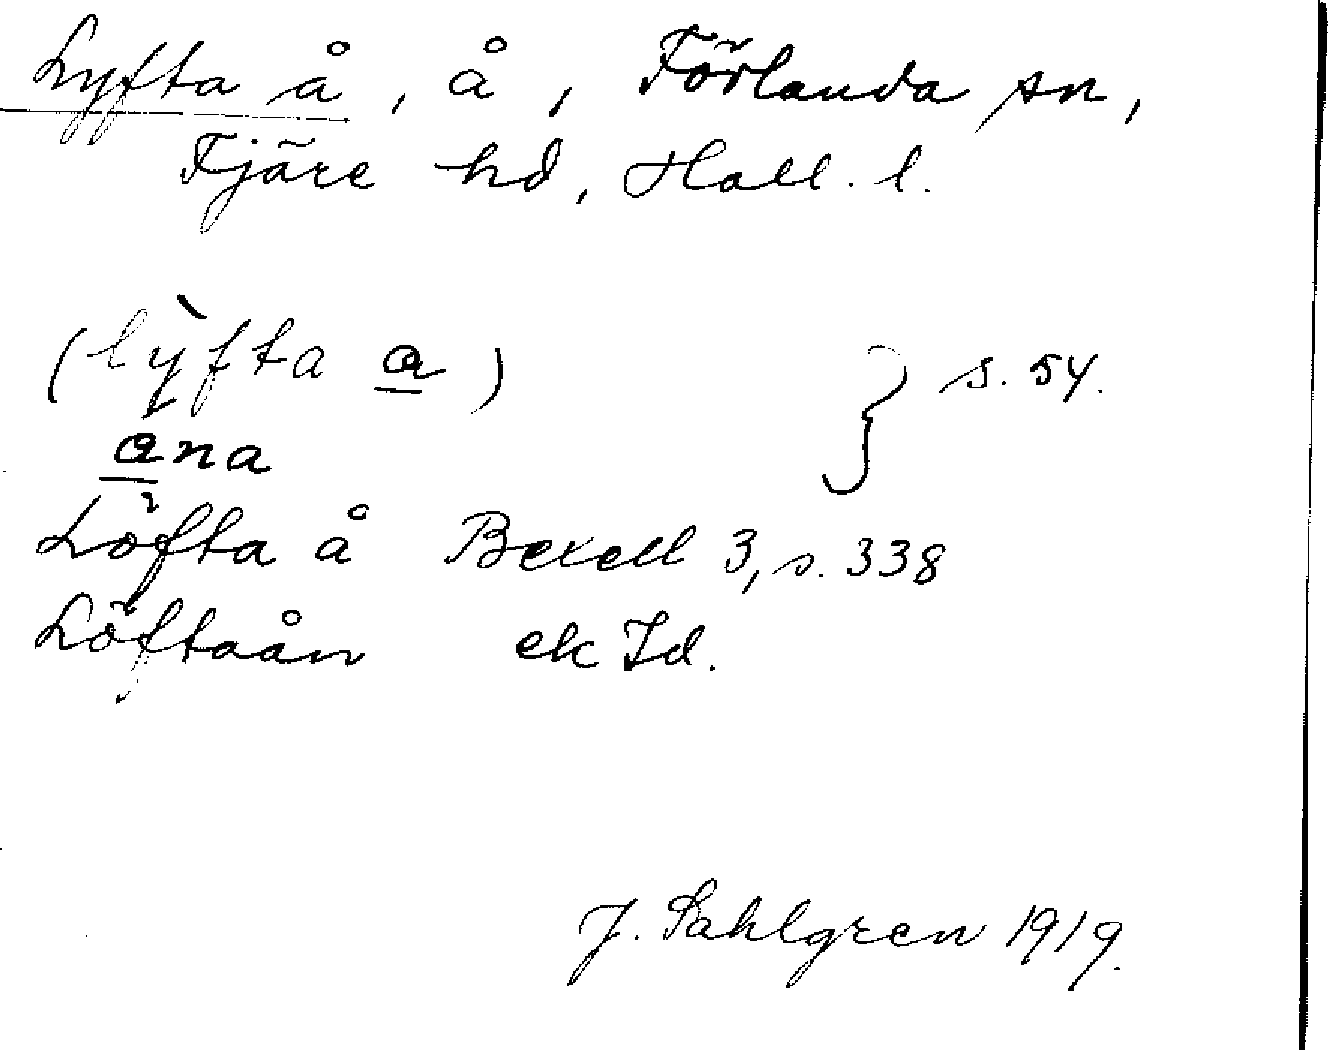 Lyfta å, å, Förlanda sn,
Fjäre hd, Hall. l.
(lỳfta a̲) } s. 54.
a̲na
Löfta å Bexell 3, s. 338
Löftaån ek Id.
J. Sahlgren 1919.